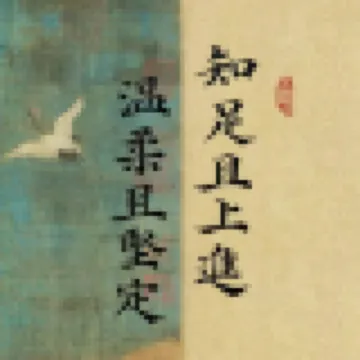 知足且上進
溫柔且堅定